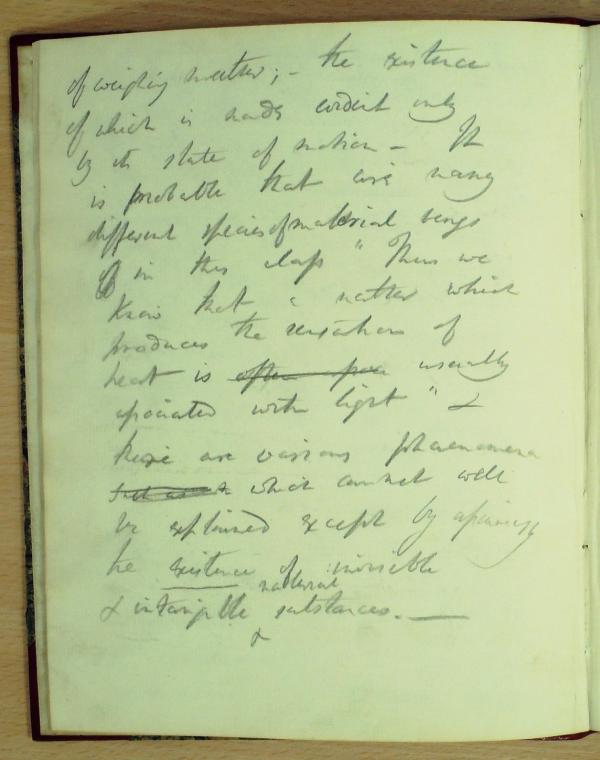 of weighing matter; - the existence
of which is made evident only
by its state of motion - It
is probable that are many
different species of material beings
in this class " Thus we
know that a matter which
produces the sensation of
heat is usually
associated with light " &
there are various phaenomena
which cannot well
be explained except by assuming
the existence of invisible
material
& intangible substances. —